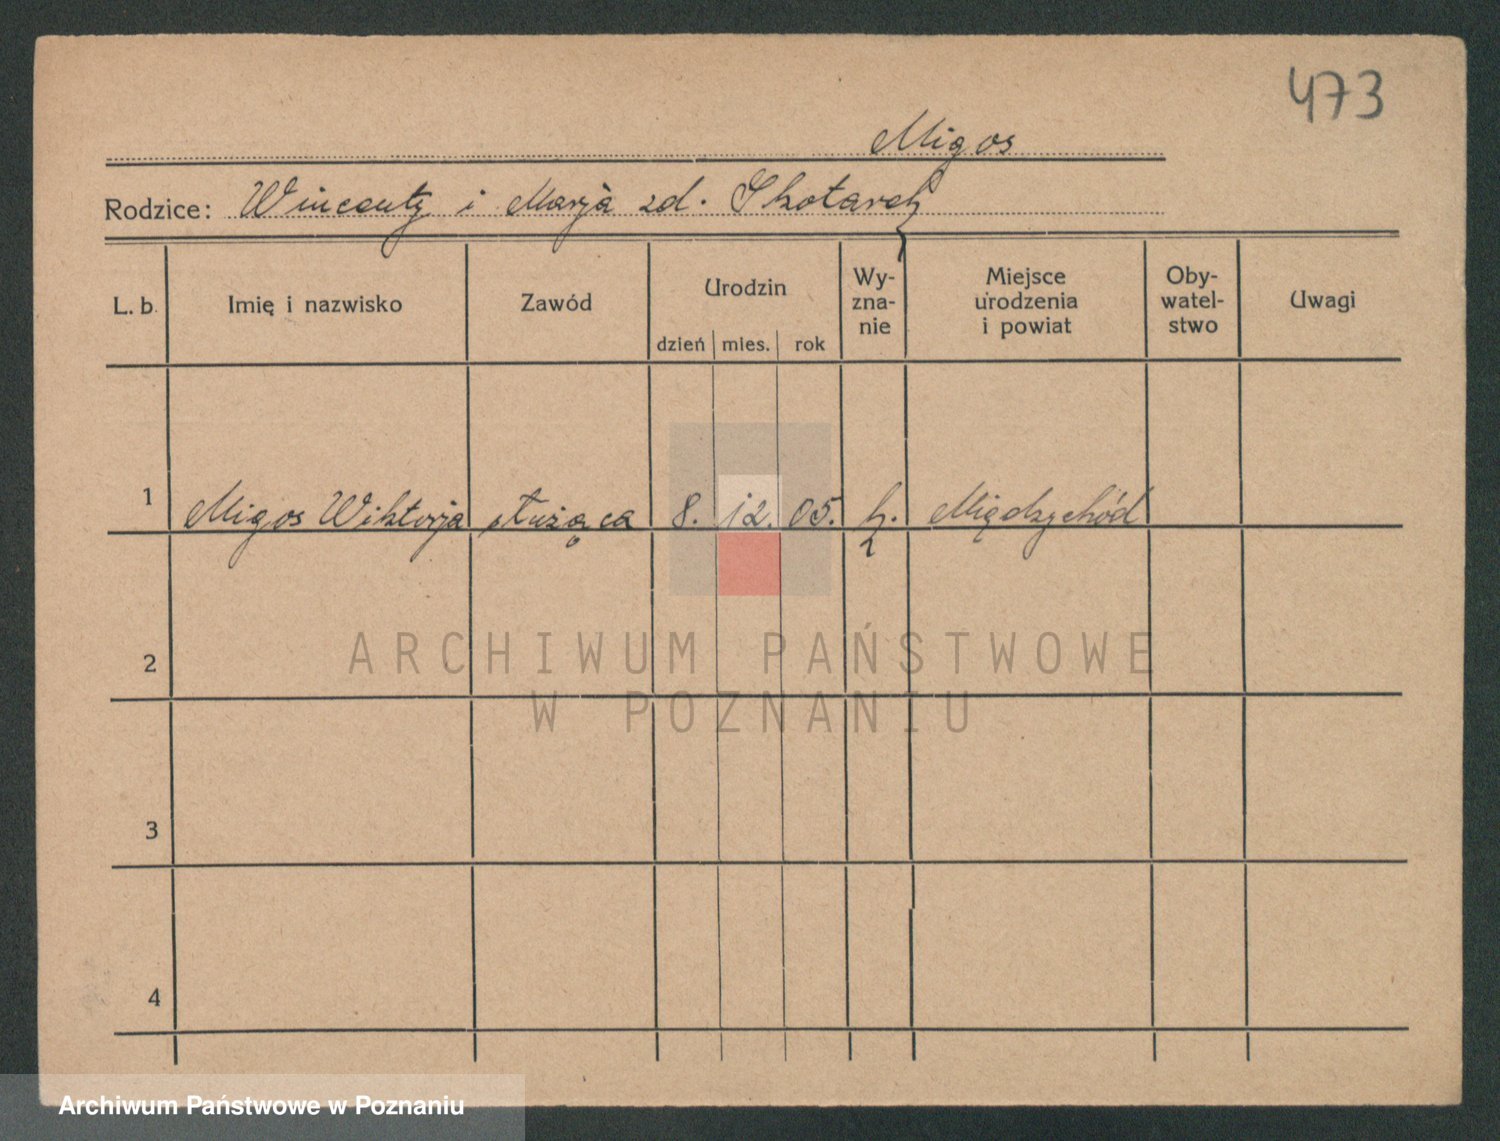 473
Migos
Rodzice: Wincenty i Marja zd.
L. b. Imię i nazwisko Zawód Urodzin dzień mies. rok Wy-zna-nie Miejsce urodzenia i powiat Oby-watel-stwo Uwagi
1 Migos Wiktorja służąca 8. 12. 05. k. Międzychód
2
3
4
ARCHIWUM PAŃSTWOWE
W POZNANIU
Archiwum Państwowe w Poznaniu